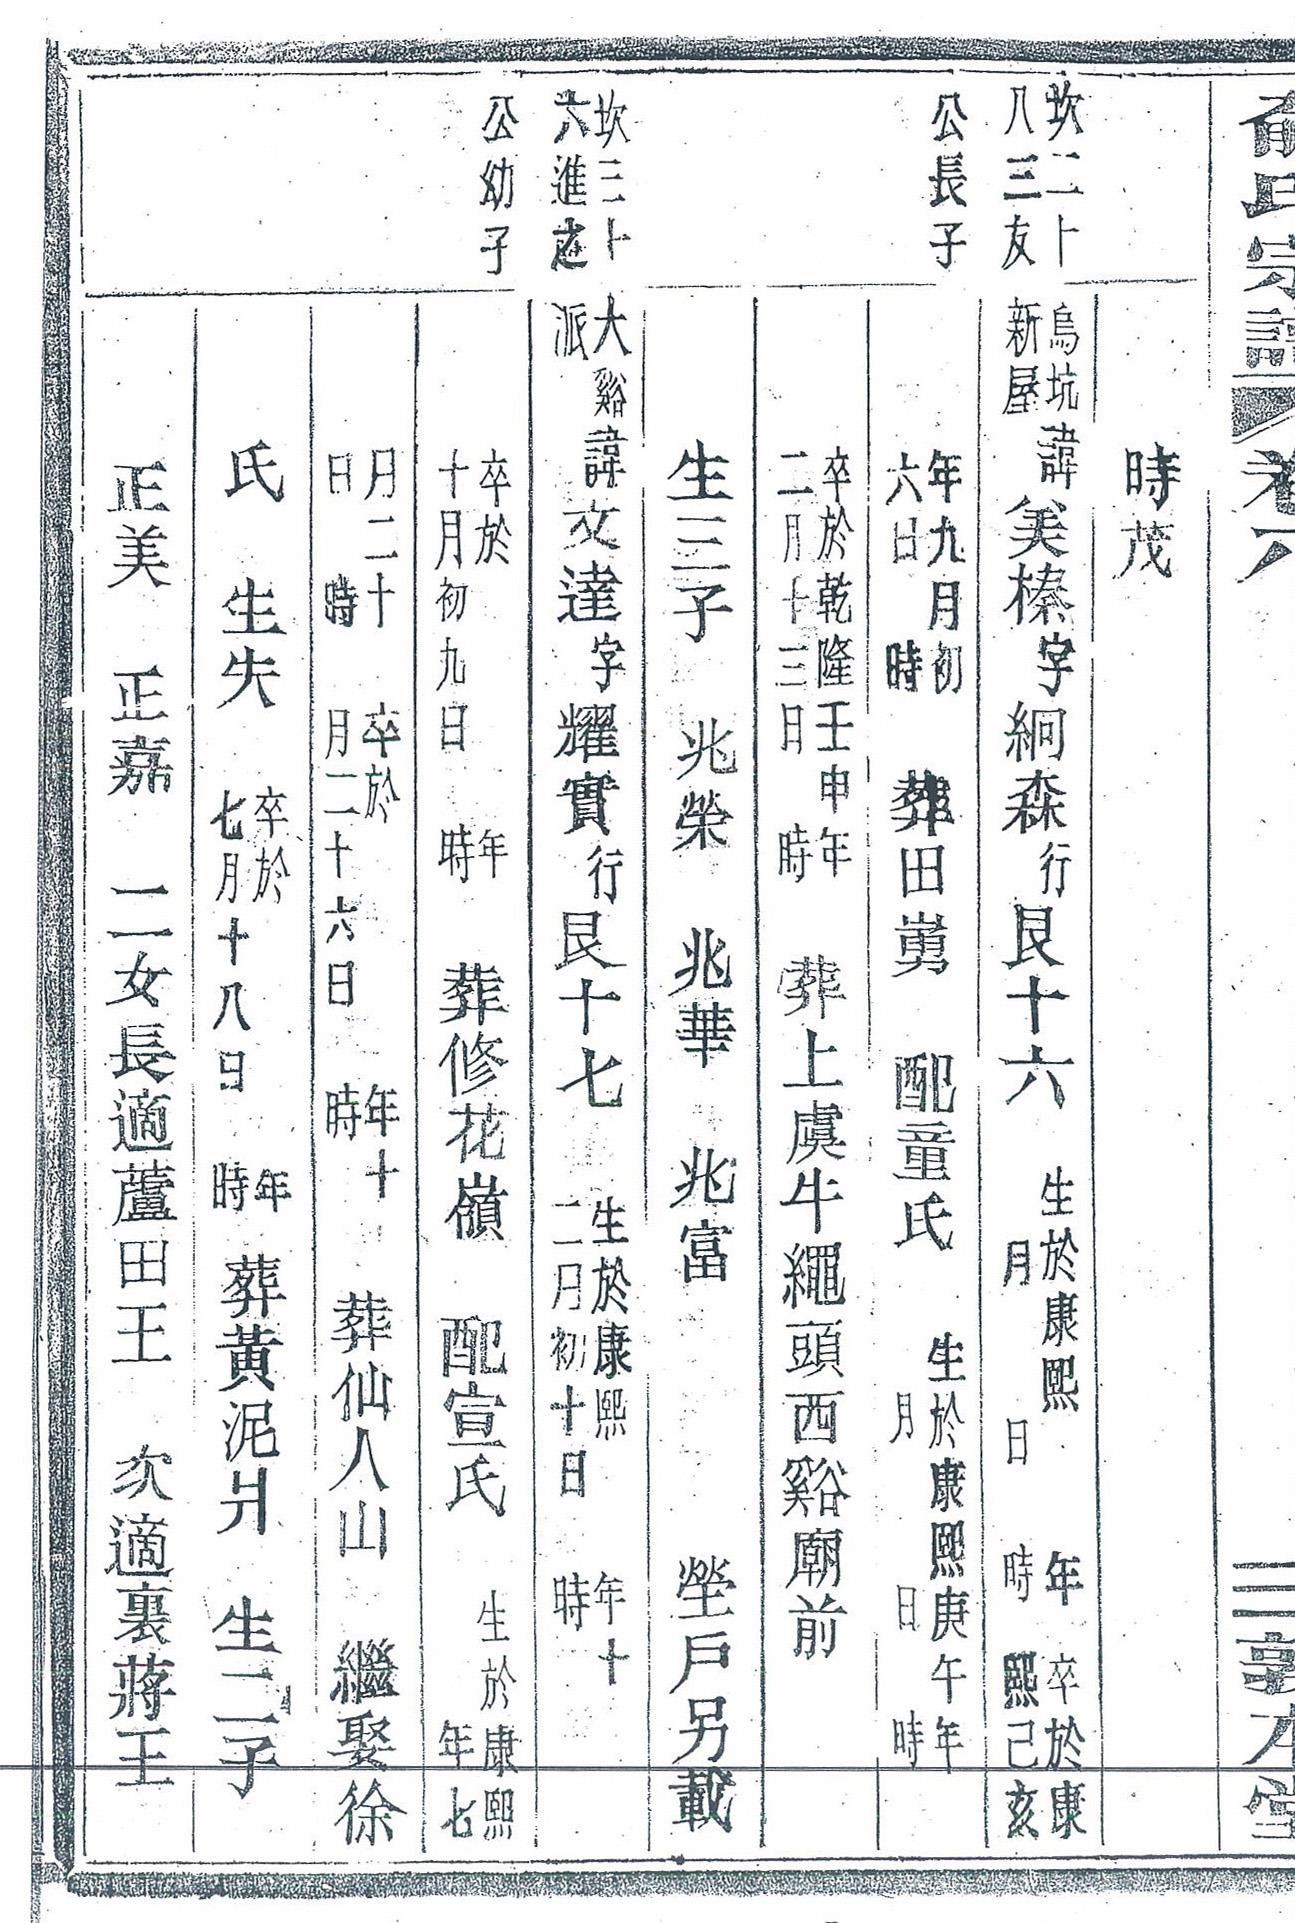 俞氏宗譜 卷六 三 敦本堂
時茂
坎二十
八三友
公長子
烏坑
新屋
諱美榛字絅森行艮十六 生於康熙 年
月 日 時
卒於康
熙己亥
年九月初
六日 時
葬田塍 配童氏 生於康熙庚午年
月 日 時
卒於乾隆壬申年
二月十三日 時
葬上虞牛繩頭西谿廟前
生三子 兆榮 兆華 兆富 塋戶另載
坎三十
六進之
公幼子
大谿
派
諱文達字耀實行艮十七 生於康熙 年十
二月初十日 時
卒於 年
十月初九日 時
葬修花嶺 配宣氏 生於康熙
年七
月二十
日 時
卒於 年十
月二十六日 時
葬仙人山 繼娶徐
氏 生失 卒於 年
七月十八日 時
葬黃泥爿 生二子
正美 正嘉 二女長適蘆田王 次適裏蔣王